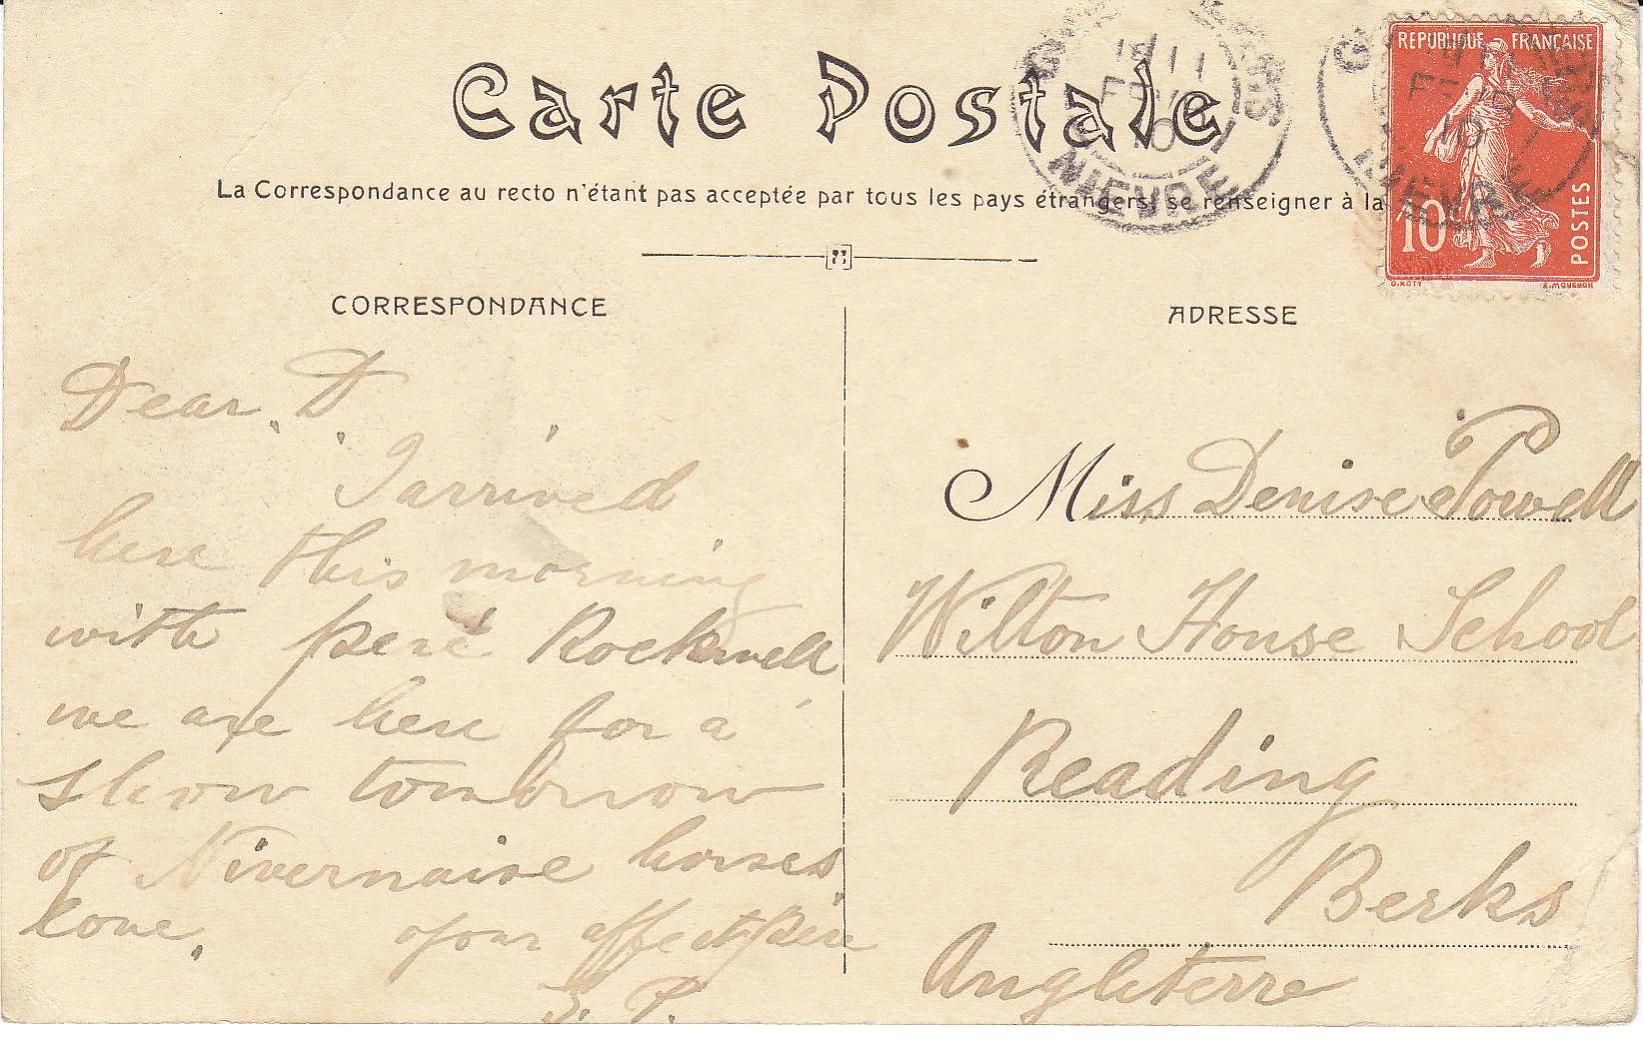 Carte Postale
La Correspondance au recto n'étant pas acceptée par tous les pays étrangers, se renseigner à la
CORRESPONDANCE
ADRESSE
REPUBLIQUE FRANÇAISE
10
POSTES
O. ROTY
E. MOUCHON
18 11
FEVR
10
NIEVRE
Dear D
I arrived
here this morning
with peré Rockwell
we are here for a
show tomorrow
of Nivernaise horses
love.
your affect père
P.
Miss Denise Powell
Wilton House School
Reading
Berks
Angleterre